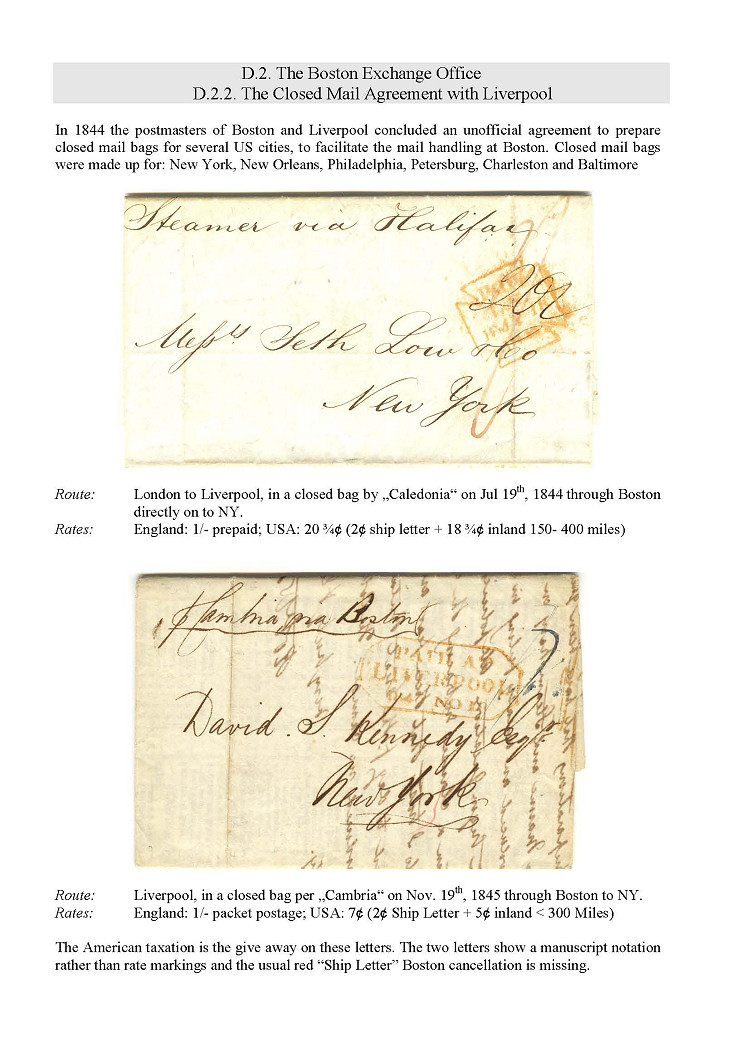 D.2. The Boston Exchange Office
D.2.2. The Closed Mail Agreement with Liverpool
In 1844 the postmasters of Boston and Liverpool concluded an unofficial agreement to prepare
closed mail bags for several US cities, to facilitate the mail handling at Boston. Closed mail bags
were made up for: New York, New Orleans, Philadelphia, Petersburg, Charleston and Baltimore
Steamer via Halifax
Messrs Seth Low & Co
New York
Route: London to Liverpool, in a closed bag by „Caledonia“ on Jul 19th, 1844 through Boston
directly on to NY.
Rates: England: 1/- prepaid; USA: 20 ¾¢ (2¢ ship letter + 18 ¾¢ inland 150- 400 miles)
p Cambria via Boston
PAID AT
LIVERPOOL
NO
7
David S. Kennedy Esqr
New York
Route: Liverpool, in a closed bag per „Cambria“ on Nov. 19th, 1845 through Boston to NY.
Rates: England: 1/- packet postage; USA: 7¢ (2¢ Ship Letter + 5¢ inland < 300 Miles)
The American taxation is the give away on these letters. The two letters show a manuscript notation
rather than rate markings and the usual red “Ship Letter” Boston cancellation is missing.